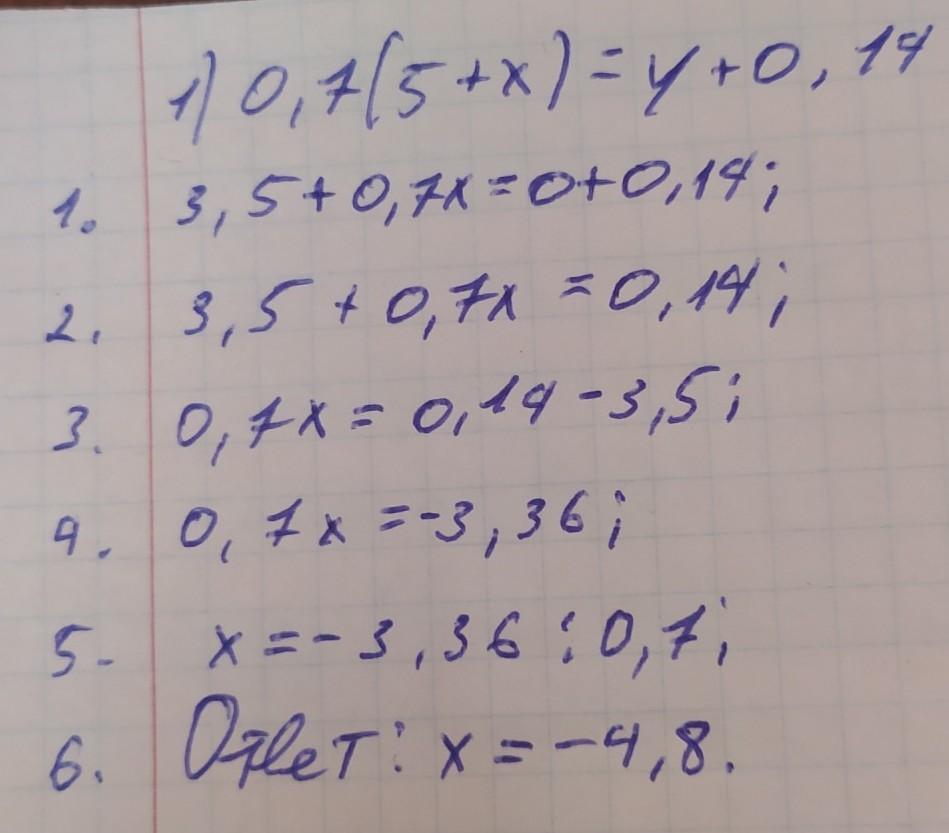 1) 0,7(5+x)=y+0,14
1. 3,5+0,7x=0+0,14;
2. 3,5+0,7x=0,14;
3. 0,7x=0,14-3,5;
4. 0,7x=-3,36;
5- x=-3,36:0,7;
6. Ответ: x=-4,8.